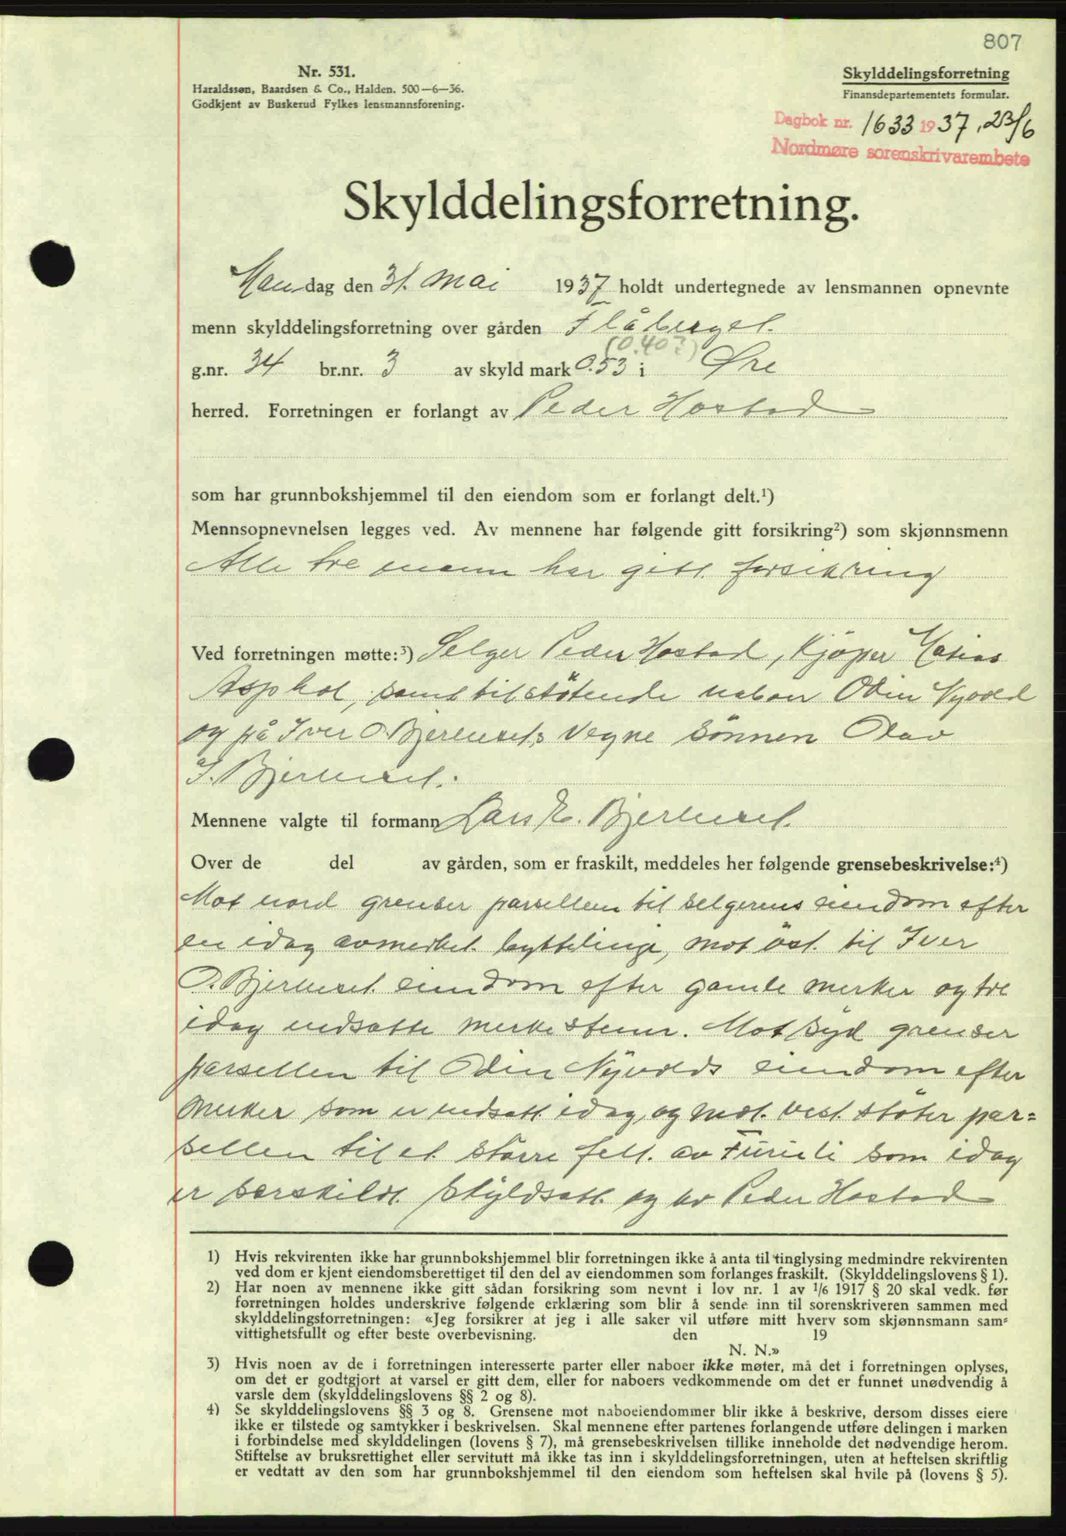 807
Nr. 531.
Haraldssøn, Baardsen & Co., Halden. 500—6—36.
Godkjent av Buskerud Fylkes lensmannsforening.
Skylddelingsforretning
Finansdepartementets formular.
Dagbok nr. 1633 1937, 23/6
Nordmøre sorenskrivarembete
Skylddelingsforretning.
Mandag den 31. mai 1937 holdt undertegnede av lensmannen opnevnte
menn skylddelingsforretning over gården Flåberget.
(0.40?)
g.nr. 34 br.nr. 3 av skyld mark 0.53 i Øre
herred. Forretningen er forlangt av Peder Hostad
som har grunnbokshjemmel til den eiendom som er forlangt delt.¹)
Mennsopnevnelsen legges ved. Av mennene har følgende gitt forsikring²) som skjønnsmenn
Alle tre menn har gitt forsikring
Ved forretningen møtte:³) Selger Peder Hostad, Kjøper
Asphol, samt tilstøtende naboer Odin Nyvold
og på Iver O. Bjerkeset,s vegne sönnen Olav
I. Bjerkeset.
Mennene valgte til formann Lars E. Bjerkeset.
Over de del av gården, som er fraskilt, meddeles her følgende grensebeskrivelse:⁴)
Mot nord grenser parsellen til selgerens eiendom efter
en idag avmerket byttelinje, mot öst. til Iver
O. Bjerkeset eiendom efter gamle merker og tre
idag nedsatte merkestener. Mot syd grenser
parsellen til Odin Nyvolds eiendom efter
merker som er nedsatt idag, og mot. vest. støter par=
sellen til et större felt. av Furuli som idag
er særskildt skyldsatt og av Peder Hostad
1) Hvis rekvirenten ikke har grunnbokshjemmel blir forretningen ikke å anta til tinglysing medmindre rekvirenten
ved dom er kjent eiendomsberettiget til den del av eiendommen som forlanges fraskilt. (Skylddelingslovens § 1).
2) Har noen av mennene ikke gitt sådan forsikring som nevnt i lov nr. 1 av 1/6 1917 § 20 skal vedk. før
forretningen holdes underskrive følgende erklæring som blir å sende inn til sorenskriveren sammen med
skylddelingsforretningen: «Jeg forsikrer at jeg i alle saker vil utføre mitt hverv som skjønnsmann sam-
vittighetsfullt og efter beste overbevisning. den 19
N. N.»
3) Hvis noen av de i forretningen interesserte parter eller naboer ikke møter, må det i forretningen oplyses,
om det er godtgjort at varsel er gitt dem, eller for naboers vedkommende om det er funnet unødvendig å
varsle dem (skylddelingslovens §§ 2 og 8).
4) Se skylddelingslovens §§ 3 og 8. Grensene mot naboeiendommer blir ikke å beskrive, dersom disses eiere
ikke er tilstede og samtykker i beskrivelsen. Skal mennene efter partenes forlangende utføre delingen i marken
i forbindelse med skylddelingen (lovens § 7), må grensebeskrivelsen tillike inneholde det nødvendige herom.
Stiftelse av bruksrettighet eller servitutt må ikke tas inn i skylddelingsforretningen, uten at heftelsen skriftlig
er vedtatt av den som har grunnbokshjemmel til den eiendom som heftelsen skal hvile på (lovens § 5).